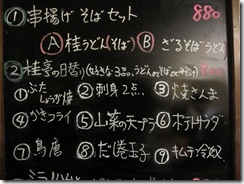 ① 串揚げ そばセット 880
Ⓐ 桂うどん(そば) Ⓑ ざるそばうどん
② 桂亭の日替り (好きな3品、うどんorそば
① ぶたしょうが焼 ② 刺身2点 ③ 焼さんま
④ カキフライ ⑤ 山菜の天プラ ⑥ ポテトサラダ
⑦ 鳥唐 ⑧ だし巻玉子 ⑨ キムチ冷奴